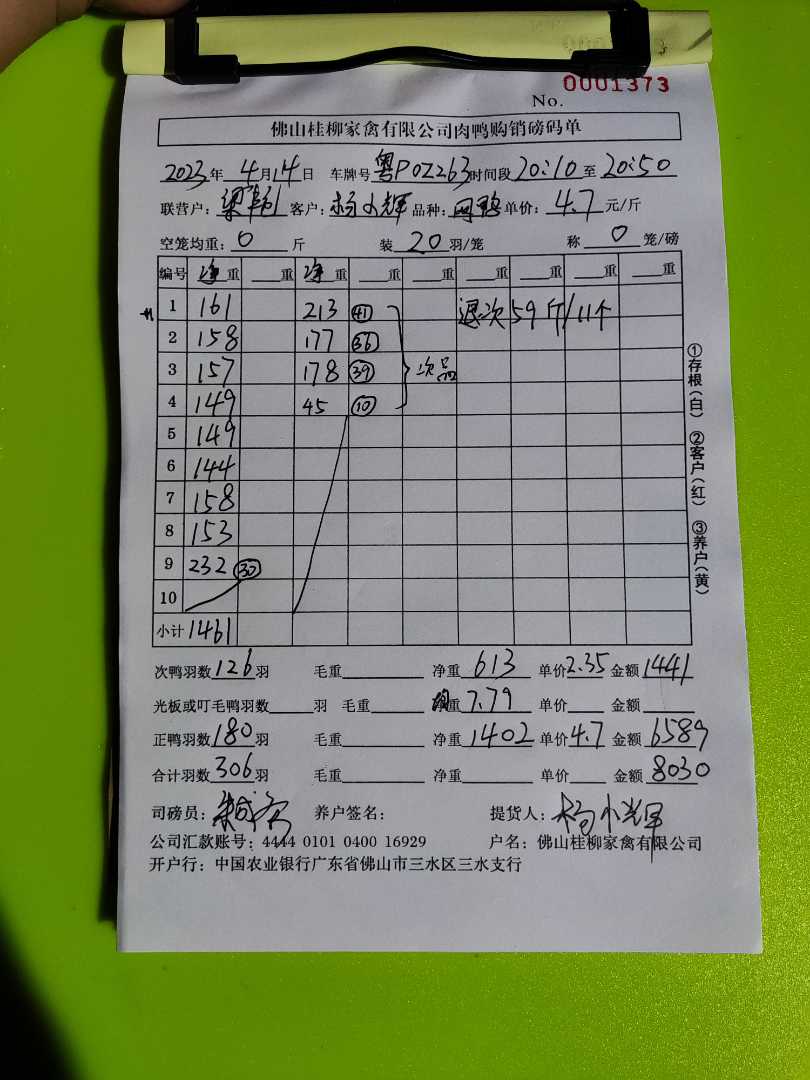 No. 0001373
佛山桂柳家禽有限公司肉鸭购销磅码单
2023年 4月14日 车牌号 粤P0Z263 时间段 20:10 至 20:50
联营户: 梁 客户: 杨小辉 品种: 网鸭 单价: 4.7 元/斤
空笼均重: 0 斤 装 20 羽/笼 称 0 笼/磅
编号 净重 重 净重 重 重 重 重 重 重
1 161 213 41 退次59斤/11个
2 158 177 36
3 157 178 39 次品
4 149 45 10
5 149
6 144
7 158
8 153
9 232 30
10
小计 1461
①存根(白) ②客户(红) ③养户(黄)
次鸭羽数 126 羽 毛重 净重 613 单价 2.35 金额 1441
光板或叮毛鸭羽数 羽 毛重 均重 7.79 单价 金额
正鸭羽数 180 羽 毛重 净重 1402 单价 4.7 金额 6589
合计羽数 306 羽 毛重 净重 单价 金额 8030
司磅员: 养户签名: 提货人: 杨小辉
公司汇款账号: 4444 0101 0400 16929 户名: 佛山桂柳家禽有限公司
开户行: 中国农业银行广东省佛山市三水区三水支行